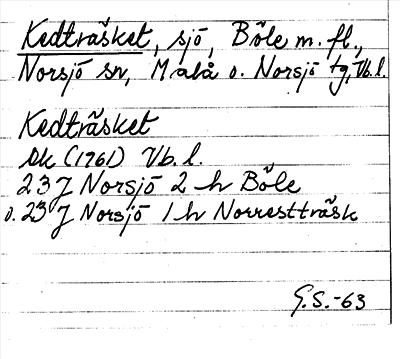 Kedträsket, sjö, Böle m. fl.,
Norsjö sn, Malå o. Norsjö tg, Vb.l.
Kedträsket
Ek (1961) Vb.l.
23J Norsjö 2 h Böle
o. 23J Norsjö 1 h Norrestträsk
G.S.-63